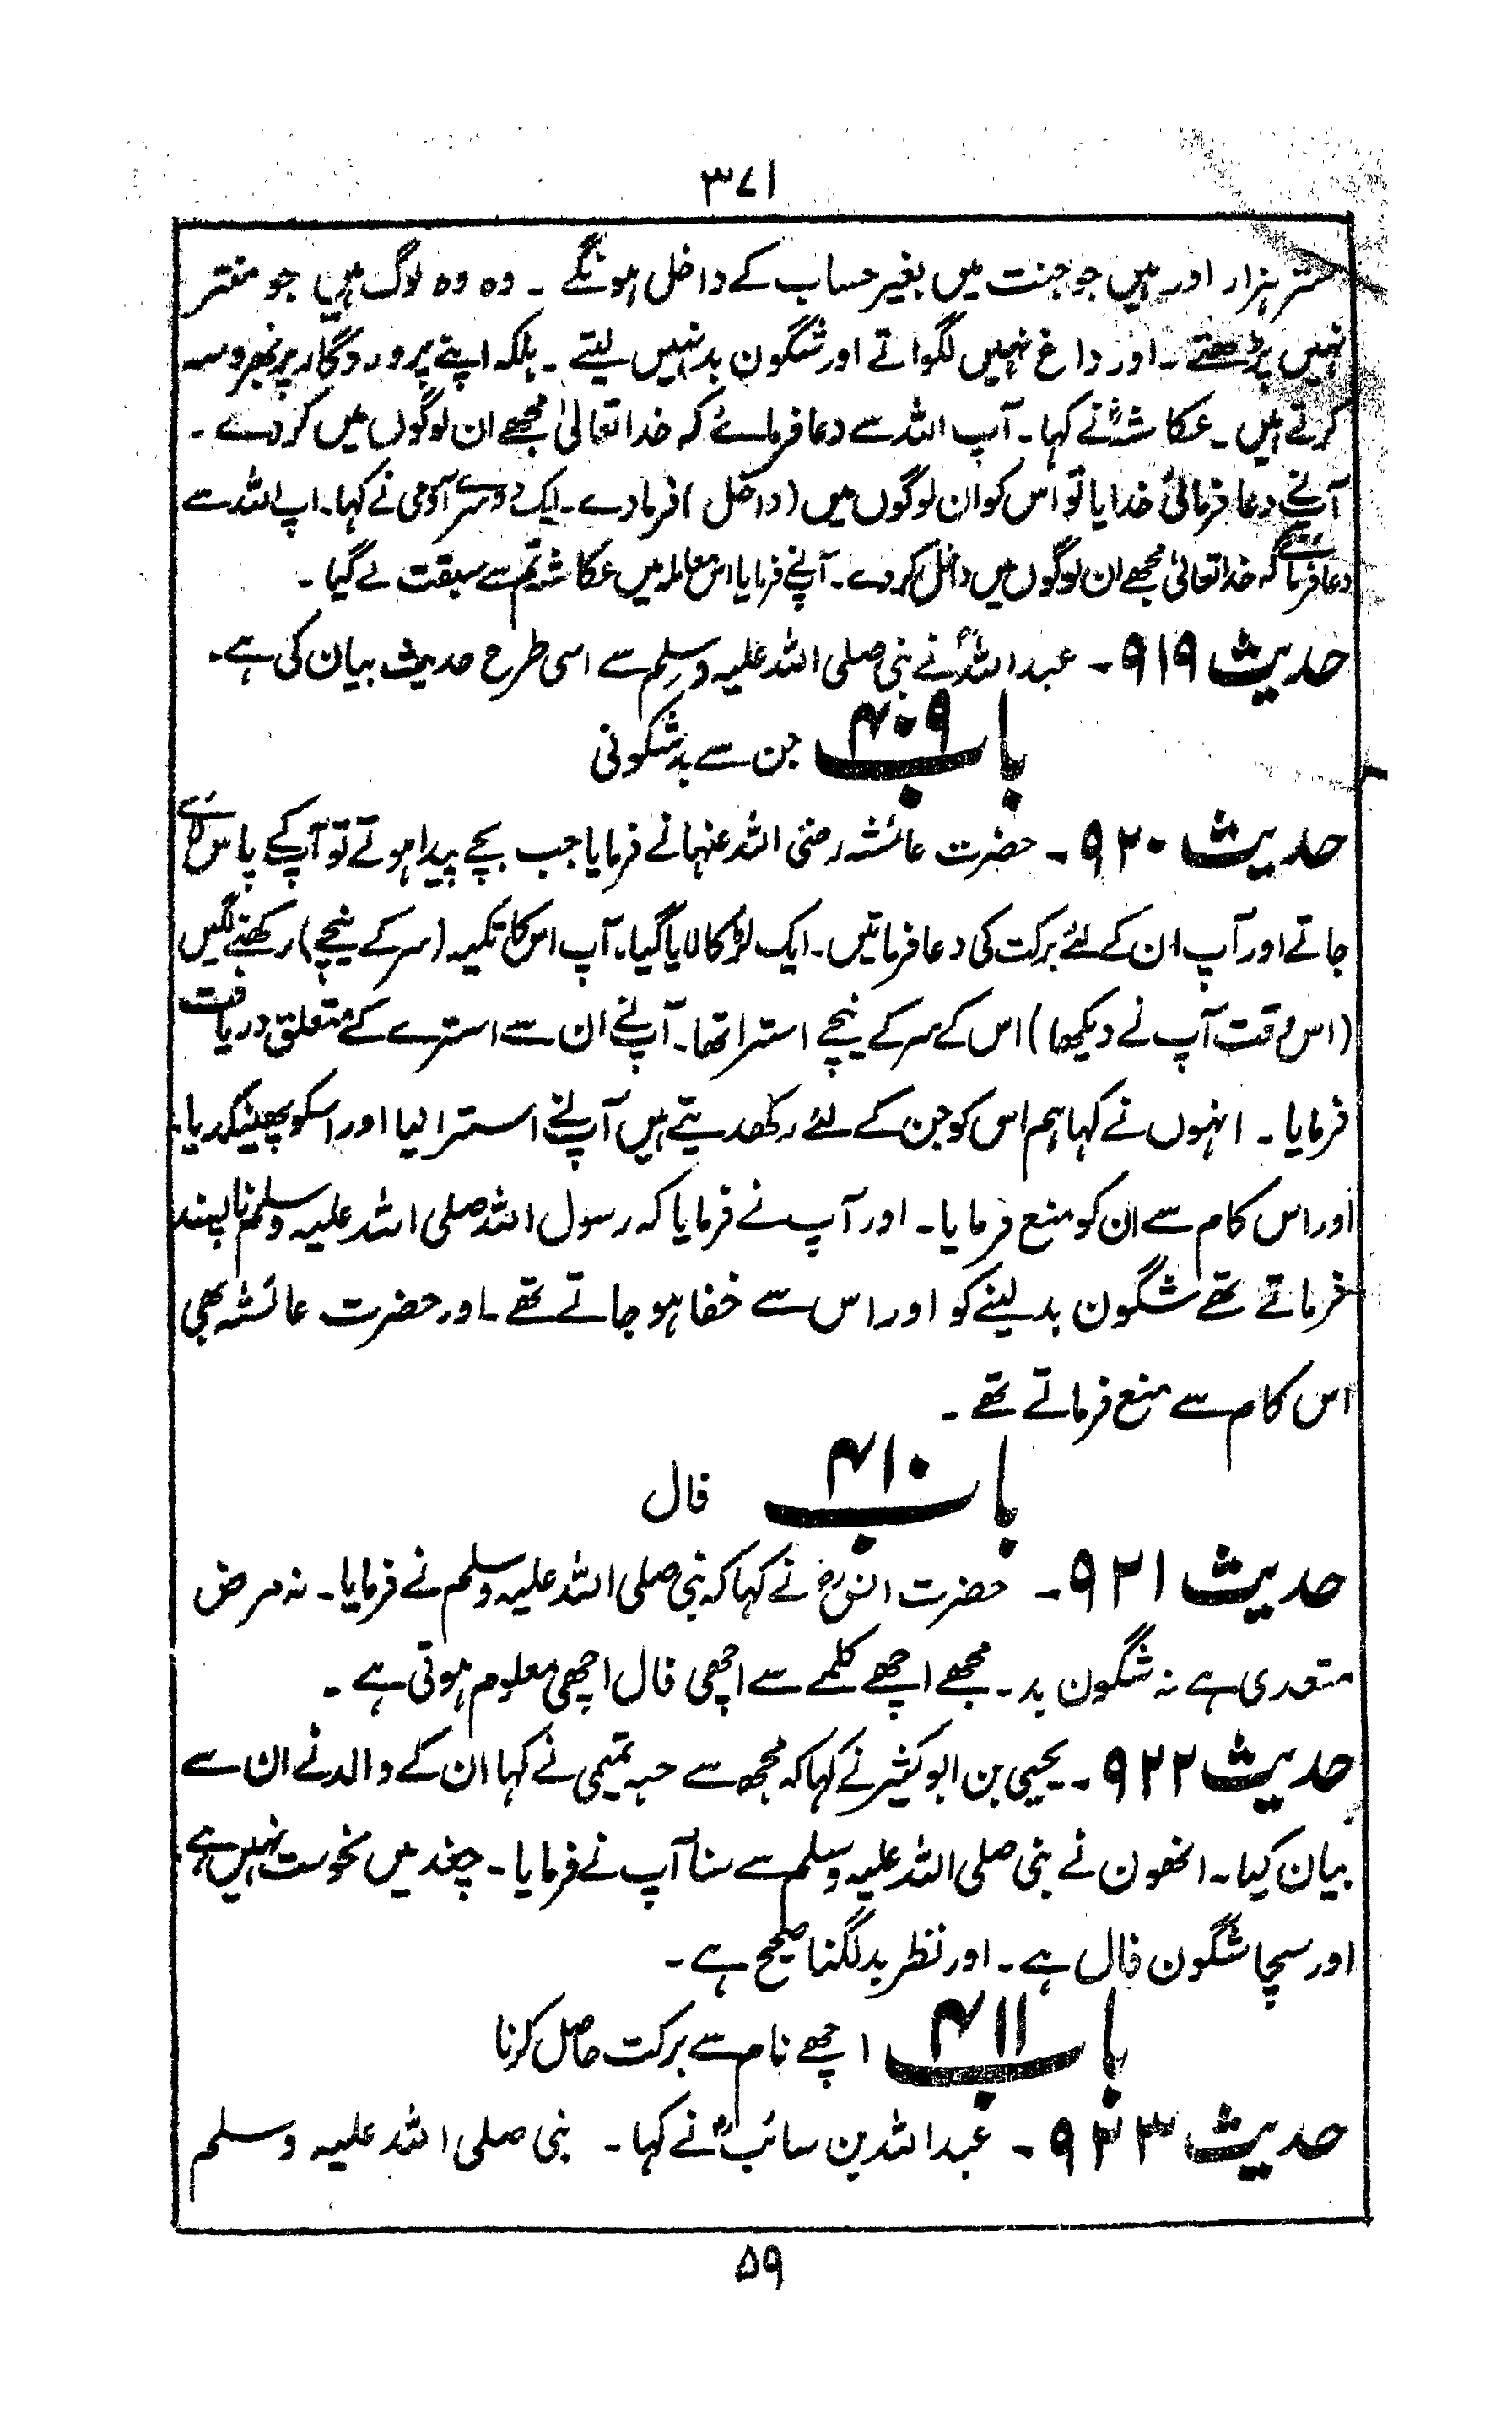 ۳۷۱
ستر ہزار اور ہیں جو جنت میں بغیر حساب کے داخل ہونگے ۔ وہ وہ لوگ ہیں جو منتر
نہیں پڑھتے ۔ اور داغ نہیں لگواتے اور شگون بد نہیں لیتے ۔ بلکہ اپنے پروردگار پر بھروسہ
کرتے ہیں ۔ عکاشہؓ نے کہا ۔ آپ اللہ سے دعا فرمائے کہ خدا تعالیٰ مجھے ان لوگوں میں کردے ۔
آپنے دعا فرمائی خدایا تو اس کو ان لوگوں میں (داخل) فرمادے ۔ ایک دوسرے آدمی نے کہا ۔ اپ اللہ سے
دعا فرمائے کہ خدا تعالیٰ مجھے ان لوگوں میں داخل کردے ۔ آپنے فرمایا اس معاملہ میں عکاشہ تم سے سبقت لے گیا ۔
حدیث ۹۱۹ ۔ عبداللہؓ نے نبی صلی اللہ علیہ وسلم سے اسی طرح حدیث بیان کی ہے ۔
باب ۴۰۹ جن سے بدشگونی
حدیث ۹۲۰ ۔ حضرت عائشہ رضی اللہ عنہا نے فرمایا جب بچے پیدا ہوتے تو آپ کے پاس لائے
جاتے اور آپ ان کے لئے برکت کی دعا فرماتیں ۔ ایک لڑکا لایا گیا ۔ آپ اس کا تکیہ (سر کے نیچے) رکھنے لگیں
(اس وقت آپ نے دیکھا) اس کے سر کے نیچے استرا تھا ۔ آپنے ان سے استرے کے متعلق دریافت
فرمایا ۔ انہوں نے کہا ہم اس کو جن کے لئے رکھدیتے ہیں آپنے استرا لیا اور اسکو پھینکدیا ۔
اور اس کام سے ان کو منع فرمایا ۔ اور آپ نے فرمایا کہ رسول اللہ صلی اللہ علیہ وسلم ناپسند
فرماتے تھے شگون بد لینے کو اور اس سے خفا ہو جاتے تھے ۔ اور حضرت عائشہ بھی
اس کام سے منع فرماتے تھے ۔
باب ۴۱۰ فال
حدیث ۹۲۱ ۔ حضرت انسؓ نے کہا کہ نبی صلی اللہ علیہ وسلم نے فرمایا ۔ نہ مرض
متعدی ہے نہ شگون بد ۔ مجھے اچھے کلمے سے اچھی فال اچھی معلوم ہوتی ہے ۔
حدیث ۹۲۲ ۔ یحییٰ بن ابو کثیر نے کہا کہ مجھ سے حبہ تمیمی نے کہا ان کے والد نے ان سے
بیان کیا ۔ انھون نے نبی صلی اللہ علیہ وسلم سے سنا آپ نے فرمایا ۔ چغد میں نحوست نہیں ہے ۔
اور سچا شگون فال ہے ۔ اور نظر بد لگنا صحیح ہے ۔
باب ۴۱۱ اچھے نام سے برکت حاصل کرنا
حدیث ۹۲۳ ۔ عبداللہ بن سائبؓ نے کہا ۔ نبی صلی اللہ علیہ وسلم
۵۹